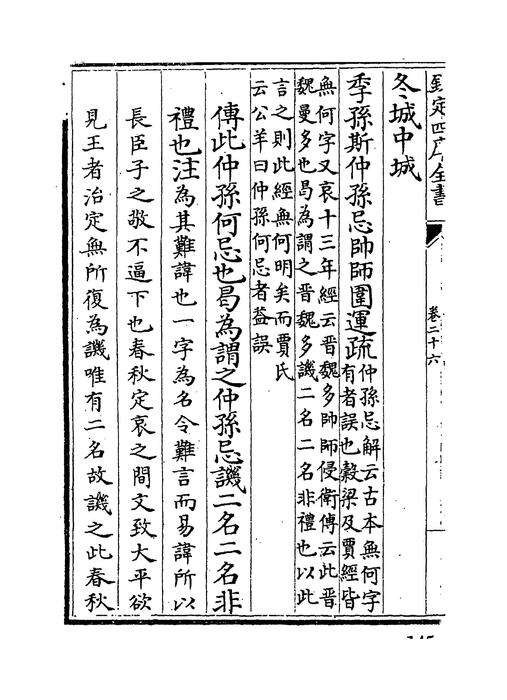 欽定四庫全書
卷二十六
冬城中城
季孫斯仲孫忌帥師圍運疏
仲孫忌解云古本無何字
有者誤也穀梁及賈經皆
無何字又哀十三年經云晉魏多帥師侵衛傳云此晉
魏曼多也曷為謂之晉魏多譏二名二名非禮也以此
言之則此經無何明矣而賈氏
云公羊曰仲孫何忌者蓋誤
傳此仲孫何忌也曷為謂之仲孫忌譏二名二名非
禮也注為其難諱也一字為名令難言而易諱所以
長臣子之敬不逼下也春秋定哀之間文致大平欲
見王者治定無所復為譏唯有二名故譏之此春秋